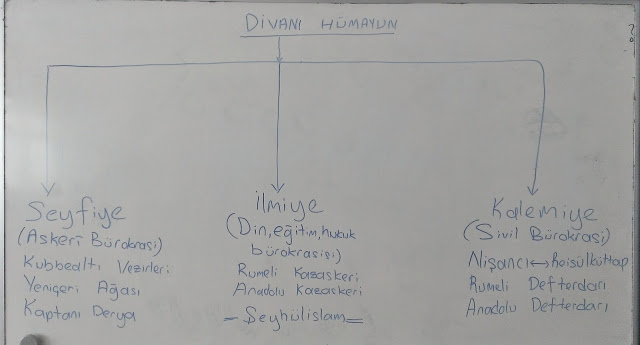 DİVANI HÜMAYUN
Seyfiye
(Askerî Bürokrasi)
Kubbealtı Vezirleri
Yeniçeri Ağası
Kaptanı Derya
İlmiye
(Din, eğitim, hukuk
bürokrasisi)
Rumeli Kazaskeri
Anadolu Kazaskeri
= Şeyhülislam =
Kalemiye
(Sivil Bürokrasi)
Nişancı ↔ Reisülküttap
Rumeli Defterdarı
Anadolu Defterdarı